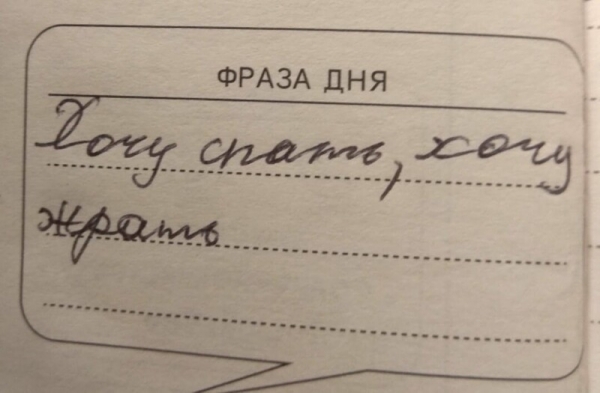 ФРАЗА ДНЯ
Хочу спать, хочу
жрать